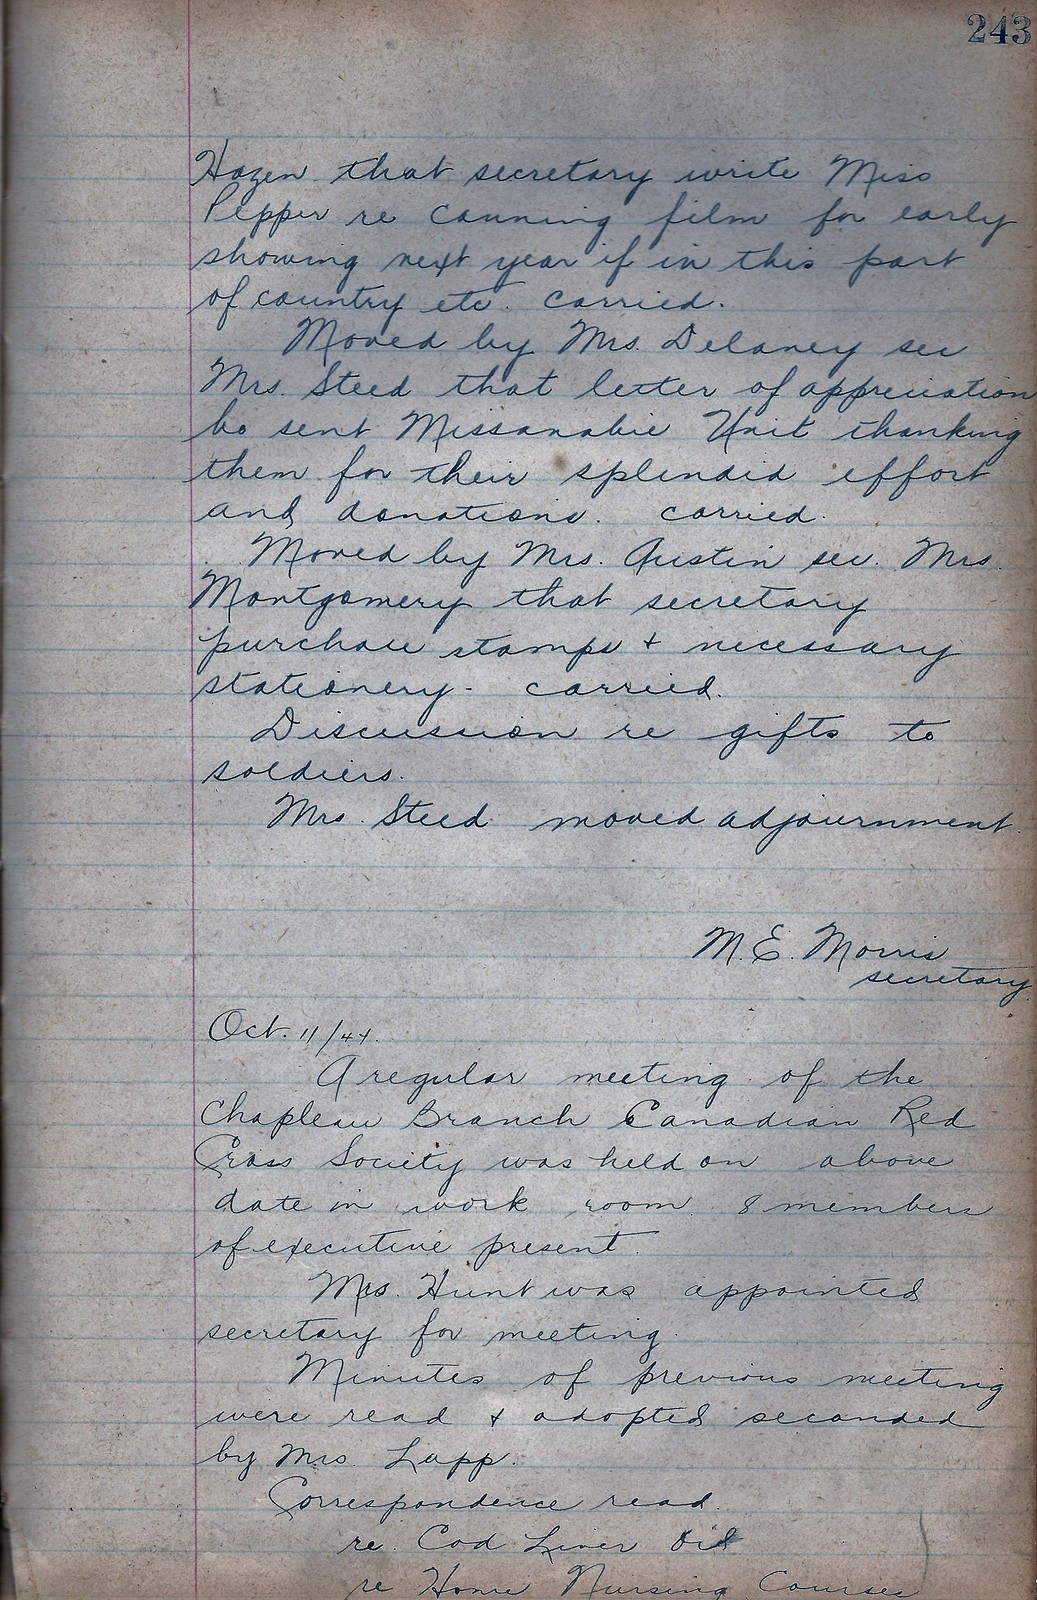 243
Hazen that secretary write Miss
Pepper re canning film for early
showing next year if in this part
of country etc. carried.
Moved by Mrs. Delaney sec
Mrs. Steed that letter of appreciation
be sent Missanabie Unit thanking
them for their splendid effort
and donations. carried.
Moved by Mrs. Austin sec. Mrs.
Montgomery that secretary
purchase stamps + necessary
stationery - carried.
Discussion re gifts to
soldiers.
Mrs. Steed moved adjournment.
M. E. Morris
secretary
Oct. 11/44.
A regular meeting of the
Chapleau Branch Canadian Red
Cross Society was held on above
date in work room. 8 members
of executive present.
Mrs. Hunt was appointed
secretary for meeting.
Minutes of previous meeting
were read + adopted seconded
by Mrs. Lapp.
Correspondence read.
re. Cod Liver Oil
re Home Nursing Courses